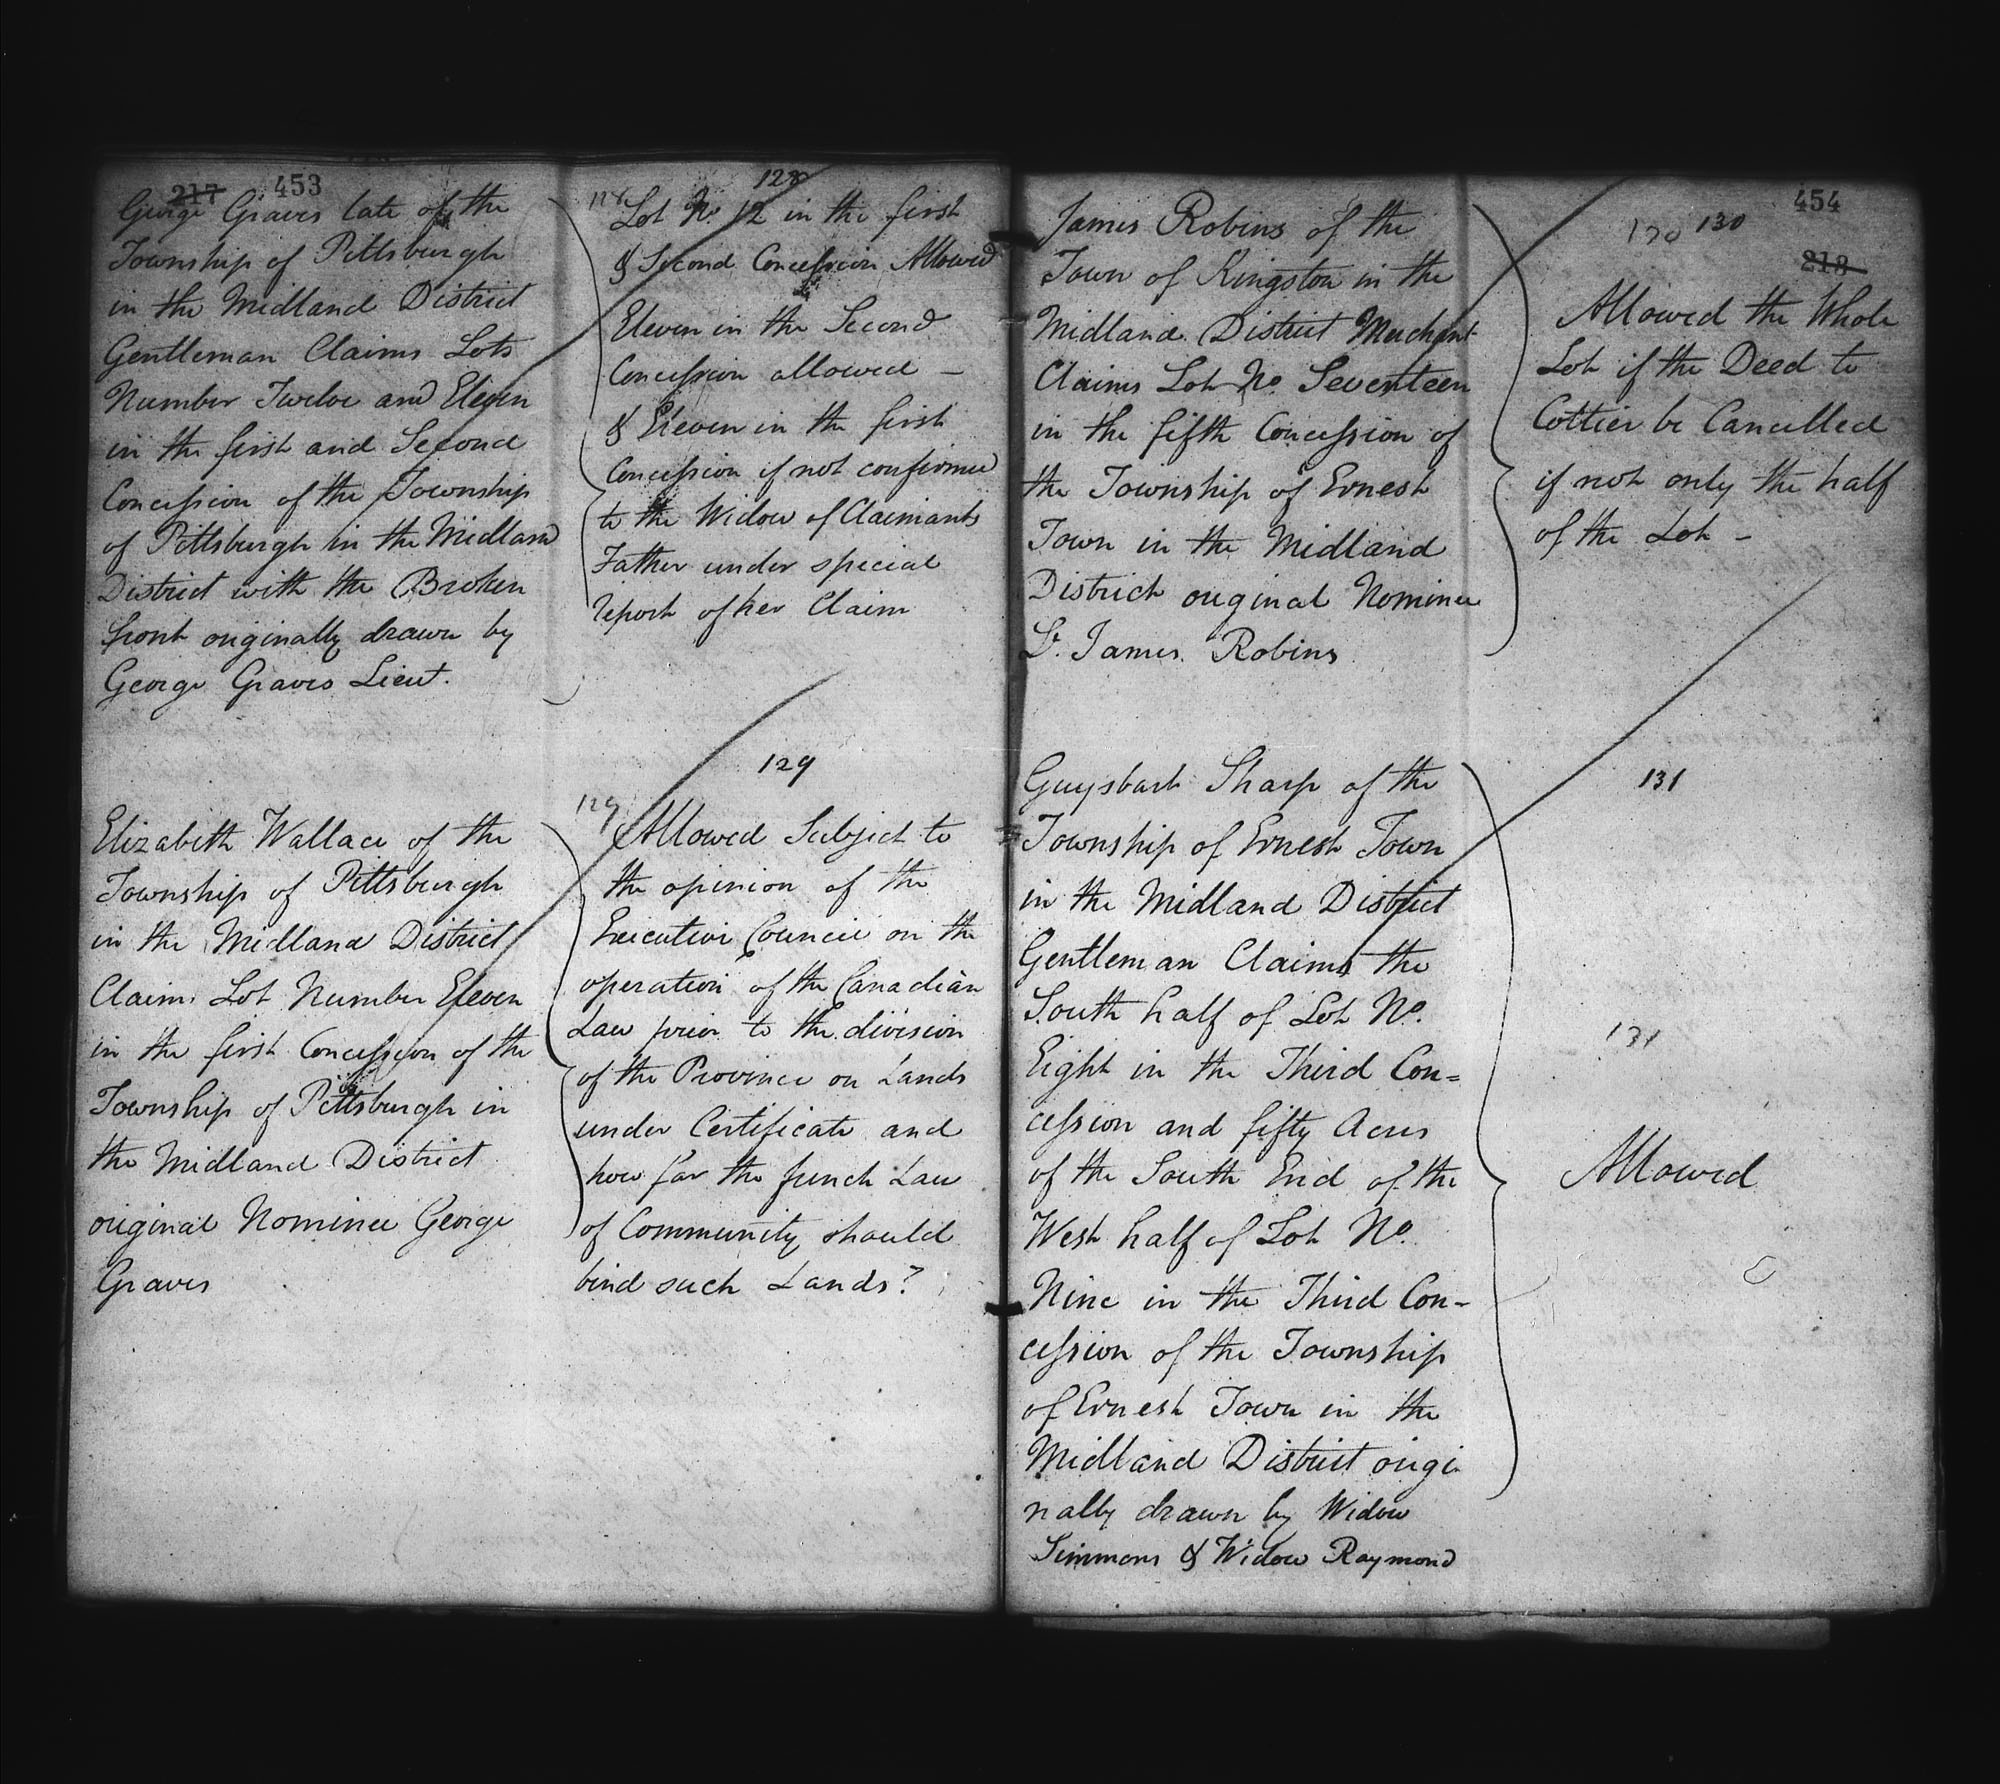 217 453
George Graves late of the
Township of Pittsburgh
in the Midland District
Gentleman Claims Lots
Number Twelve and Eleven
in the first and Second
Concession of the Township
of Pittsburgh in the Midland
District with the Broken
front originally drawn by
George Graves Lieut.
128
128
Lot No. 12 in the first
& Second Concession Allowed
Eleven in the Second
Concession allowed –
& Eleven in the first
Concession if not confirmed
to the Widow of Claimants
Father under special
report of her Claim
Elizabeth Wallace of the
Township of Pittsburgh
in the Midland District
Claims Lot Number Eleven
in the first Concession of the
Township of Pittsburgh in
the Midland District
original Nominee George
Graves
129
129
Allowed Subject to
the opinion of the
Executive Council on the
operation of the Canadian
Law prior to the division
of the Province on Lands
under Certificate and
how far the french Law
of Community should
bind such Lands?
454
James Robins of the
Town of Kingston in the
Midland District Merchant
Claims Lot No. Seventeen
in the fifth Concession of
the Township of Ernest
Town in the Midland
District original Nominee
Lt. James Robins
130 130
218
Allowed the Whole
Lot if the Deed to
Cottier be Cancelled
if not only the half
of the Lot –
Guysbart Sharp of the
Township of Ernest Town
in the Midland District
Gentleman Claims the
South half of Lot No.
Eight in the Third Con=
cession and fifty Acres
of the South End of the
West half of Lot No.
Nine in the Third Con-
cession of the Township
of Ernest Town in the
Midland District origi
nally drawn by Widow
Simmons & Widow Raymond
131
131
Allowed